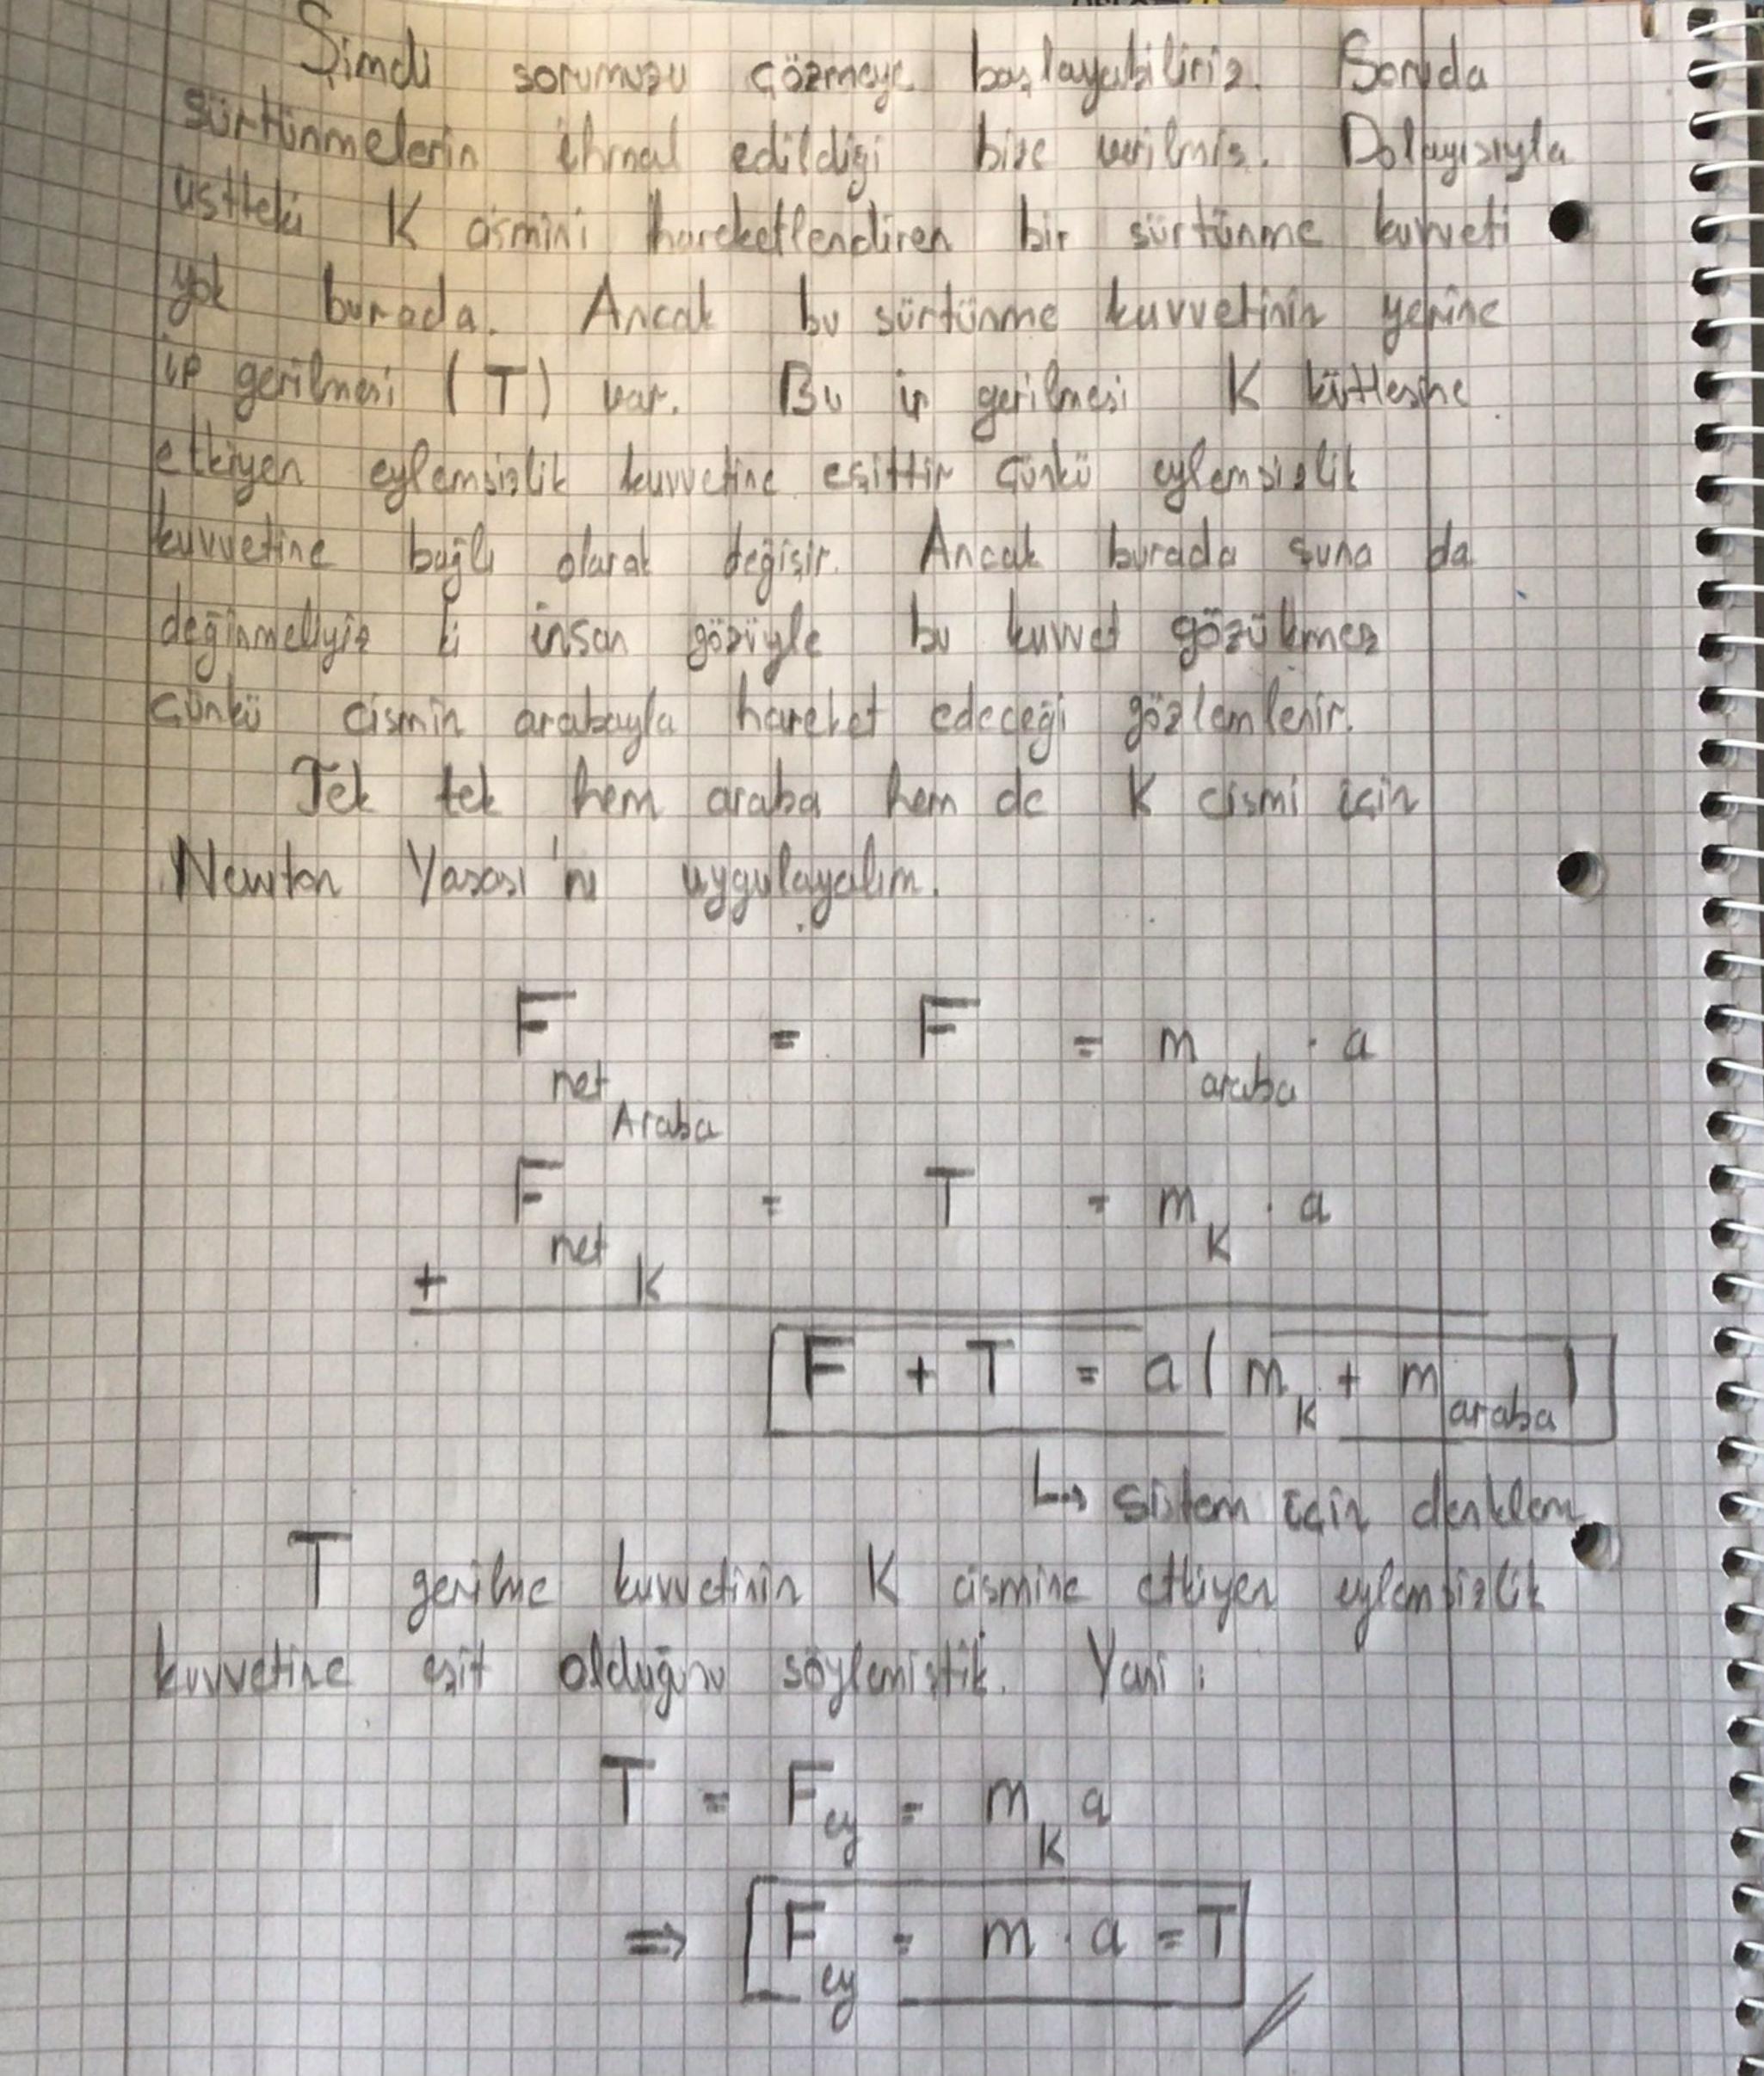 Şimdi sorumuzu çözmeye başlayabiliriz. Soruda
sürtünmelerin ihmal edildiği bize verilmiş. Dolayısıyla
üstteki K cismini hareketlendiren bir sürtünme kuvveti
yok burada. Ancak bu sürtünme kuvvetinin yerine
ip gerilmesi (T) var. Bu ip gerilmesi K kütlesine
etkiyen eylemsizlik kuvvetine eşittir çünkü eylemsizlik
kuvvetine bağlı olarak değişir. Ancak burada şuna da
değinmeliyiz ki insan gözüyle bu kuvvet gözükmez
çünkü cismin arabayla hareket edeceği gözlemlenir.
Tek tek hem araba hem de K cismi için
Newton Yasası'nı uygulayalım.
F net Araba = F = m araba · a
F net K = T = m K · a
+
F + T = a ( m K + m araba )
↳ sistem için denklem
T gerilme kuvvetinin K cismine etkiyen eylemsizlik
kuvvetine eşit olduğunu söylemiştik. Yani:
T = F ey = m K a
⇒ F ey = m · a = T